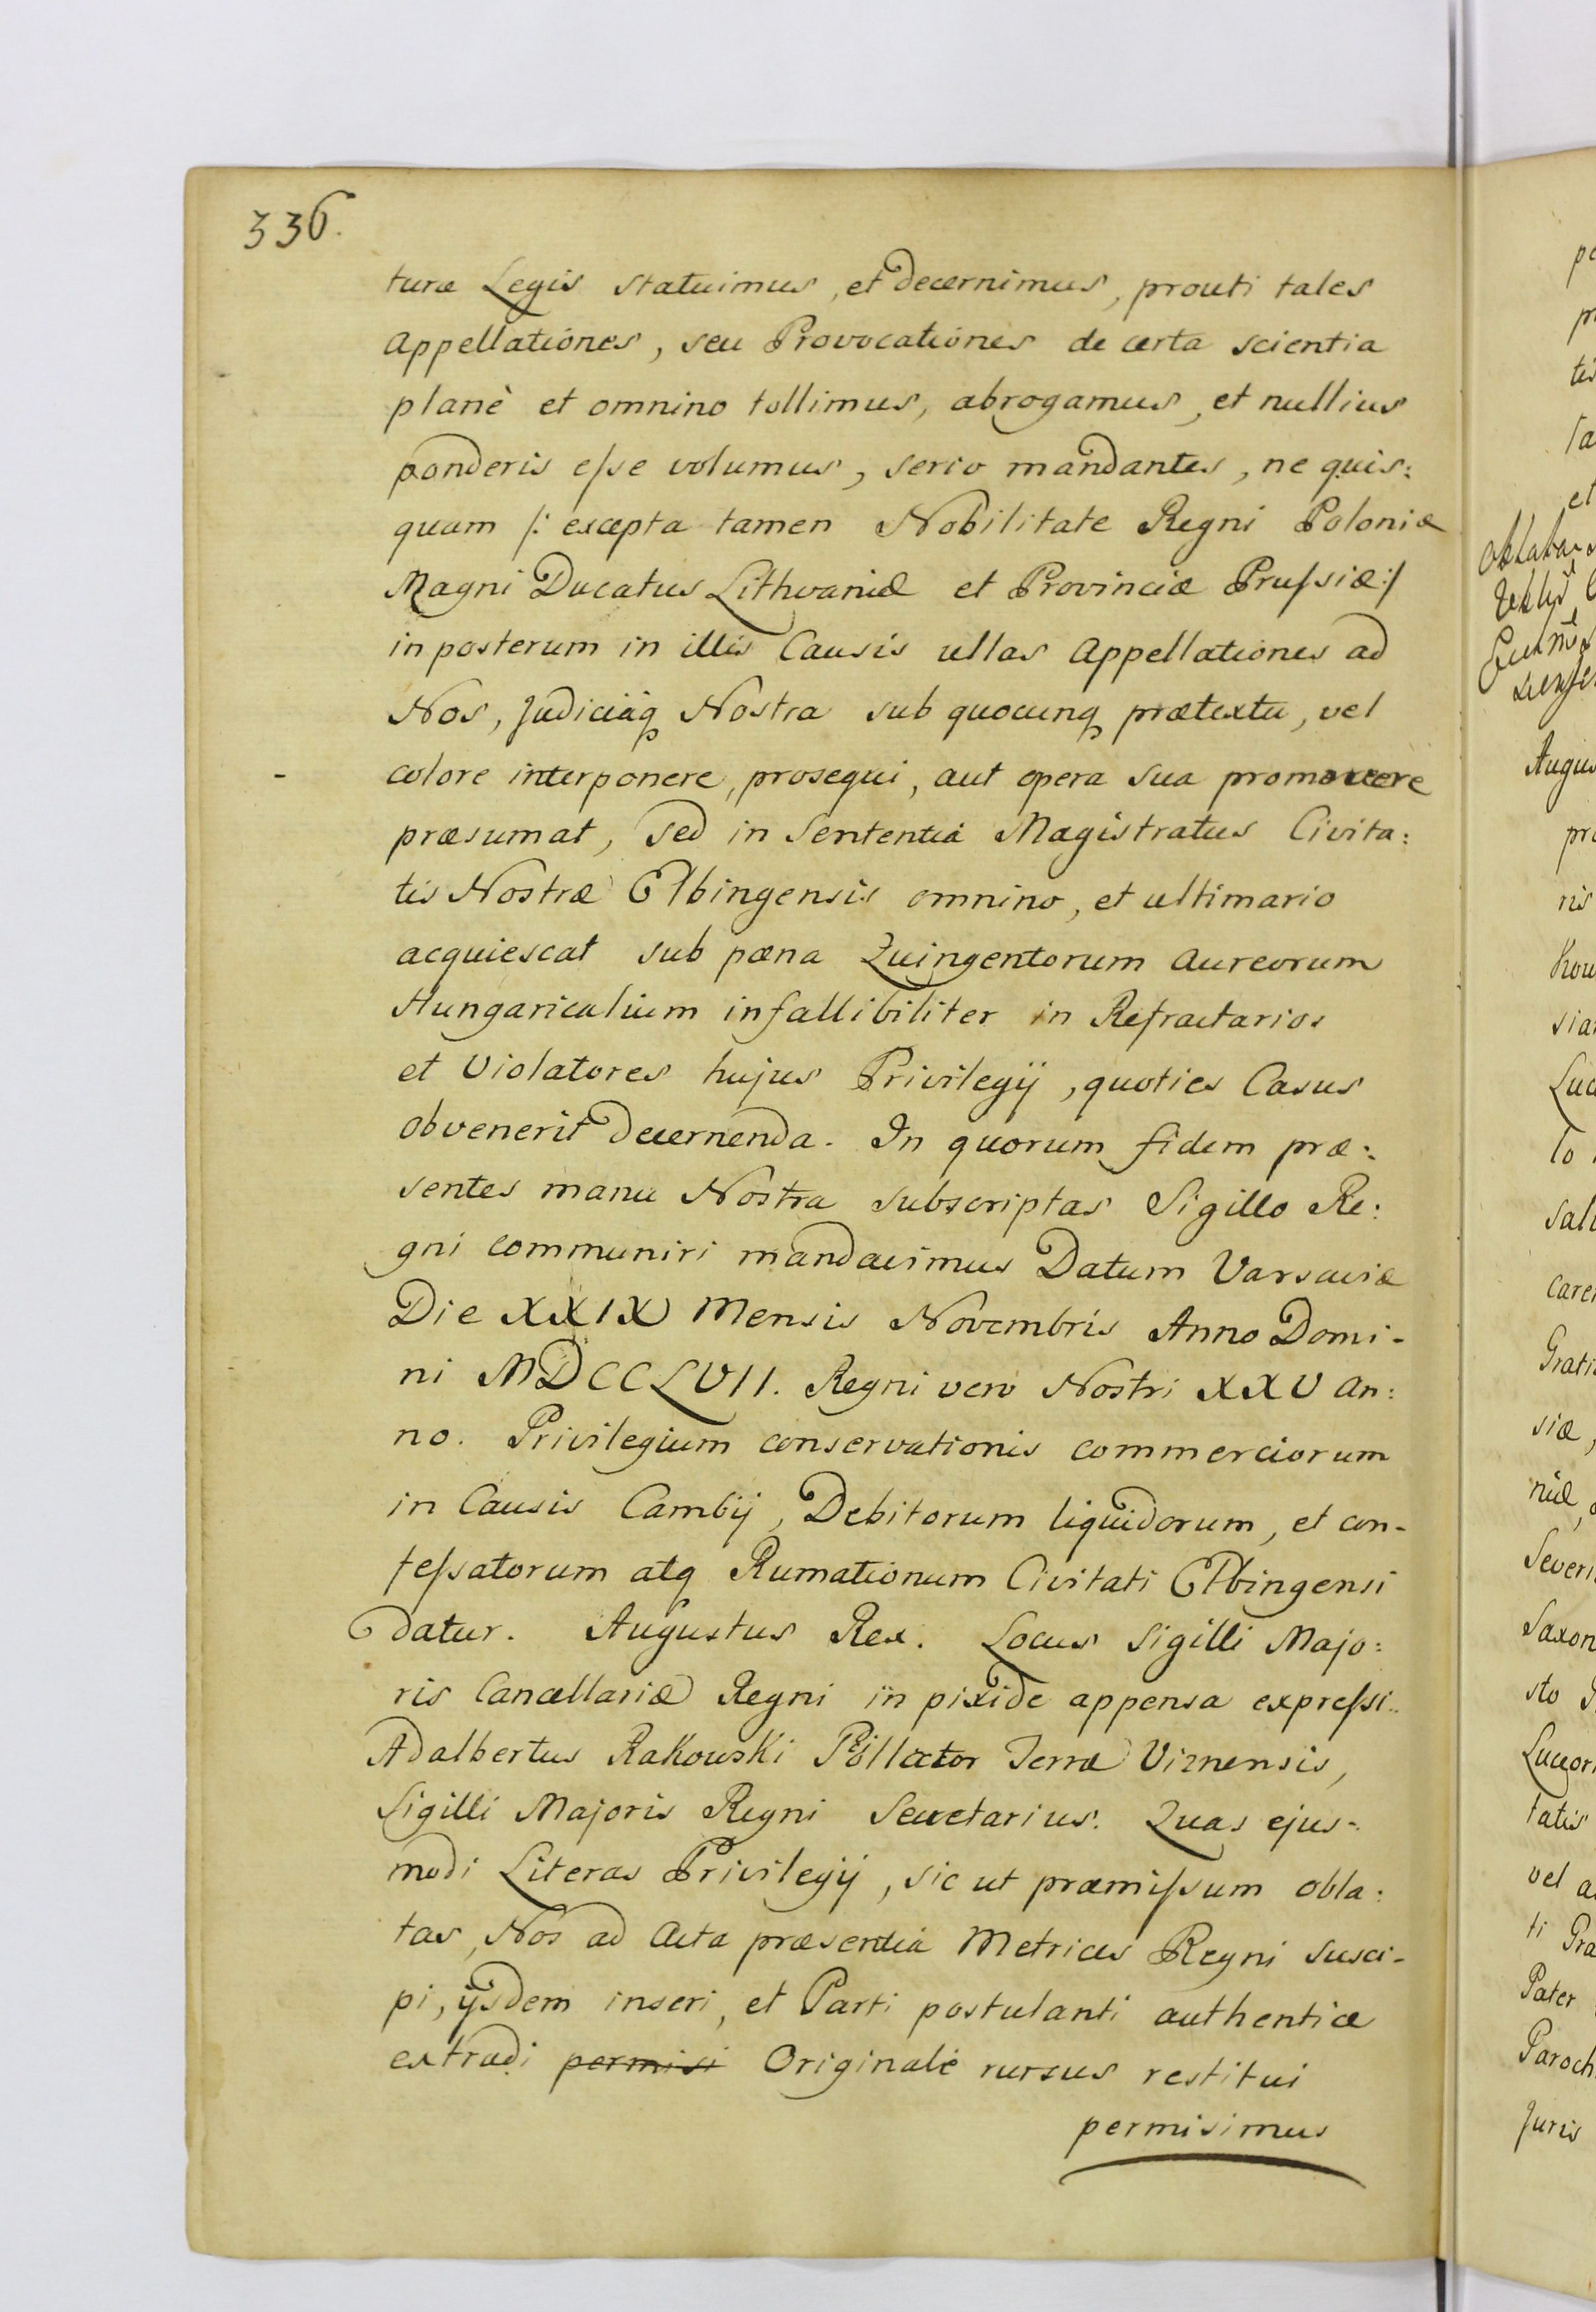 336.
turæ Legis statuimus, et decernimus, prouti tales
Appellationes, seu Provocationes de certa scientia
planè et omnino tollimus, abrogamus, et nullius
ponderis eſse volumus, serio mandantes, ne quis:
quam /: excepta tamen Nobilitate Regni Poloniæ
Magni Ducatus Lithvaniæ et Provinciæ Pruſsiæ :/
in posterum in illis Causis ullas Appellationes ad
Nos, Judiciaq Nostra sub quocunq prætextu, vel
colore interponere, prosequi, aut opera sua promovere
præsumat, sed in Sententia Magistratus Civita:
tis Nostræ Elbingensis omnino, et ultimario
acquiescat sub pæna Quingentorum Aureorum
Hungaricalium infallibiliter in Refractarios
et Violatores hujus Privilegij, quoties Casus
obvenerit decernenda. In quorum fidem præ:
sentes manu Nostra subscriptas Sigillo Re:
gni communiri mandavimus Datum Varsaviæ
Die XXIX Mensis Novembris Anno Domi-
ni MDCCLVII. Regni vero Nostri XXV An:
no. Privilegium conservationis commerciorum
in Causis Cambij, Debitorum liquidorum, et con-
feſsatorum atq Rumationum Civitati Elbingensi
datur. Augustus Rex. Locus Sigilli Majo:
ris Cancellariæ Regni in pixide appensa expreſsi.
Adalbertus Rakowski Pollector Terræ Viznensis,
Sigilli Majoris Regni Secretarius. Quas ejus-
modi Literas Privilegij, sic ut præmiſsum obla:
tas, Nos ad Acta præsentia Metrices Regni susci-
pi, ijsdem inseri, et Parti postulanti authentice
extradi permisi Originale rursus restitui
permisimus
Augus
pro
ris
Luc
to
sal
care
Grati
siæ,
niæ,
Severi
Saxon
sto
Luceor
tatis
vel a
ti Gra
Pater
Paroch
Juris